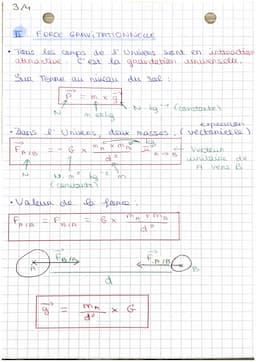 3/4
II FORCE GRAVITATIONNELLE
• Tous les corps de l'Univers sont en interaction
attractive. C'est la gravitation universelle.
Sur Terre au niveau du sol :
P = m × g
N m en kg N·kg⁻¹ (constante)
• Dans l'Univers, deux masses : (expression vectorielle)
F A/B = - G × mA × mB / d² u A→B ← Vecteur
unitaire de
A vers B
N N·m²·kg⁻² m kg
(constante)
• Valeur de la force :
F A/B = F B/A = G × mA × mB / d²
A F B/A F A/B B
d
g = mA / d² × G